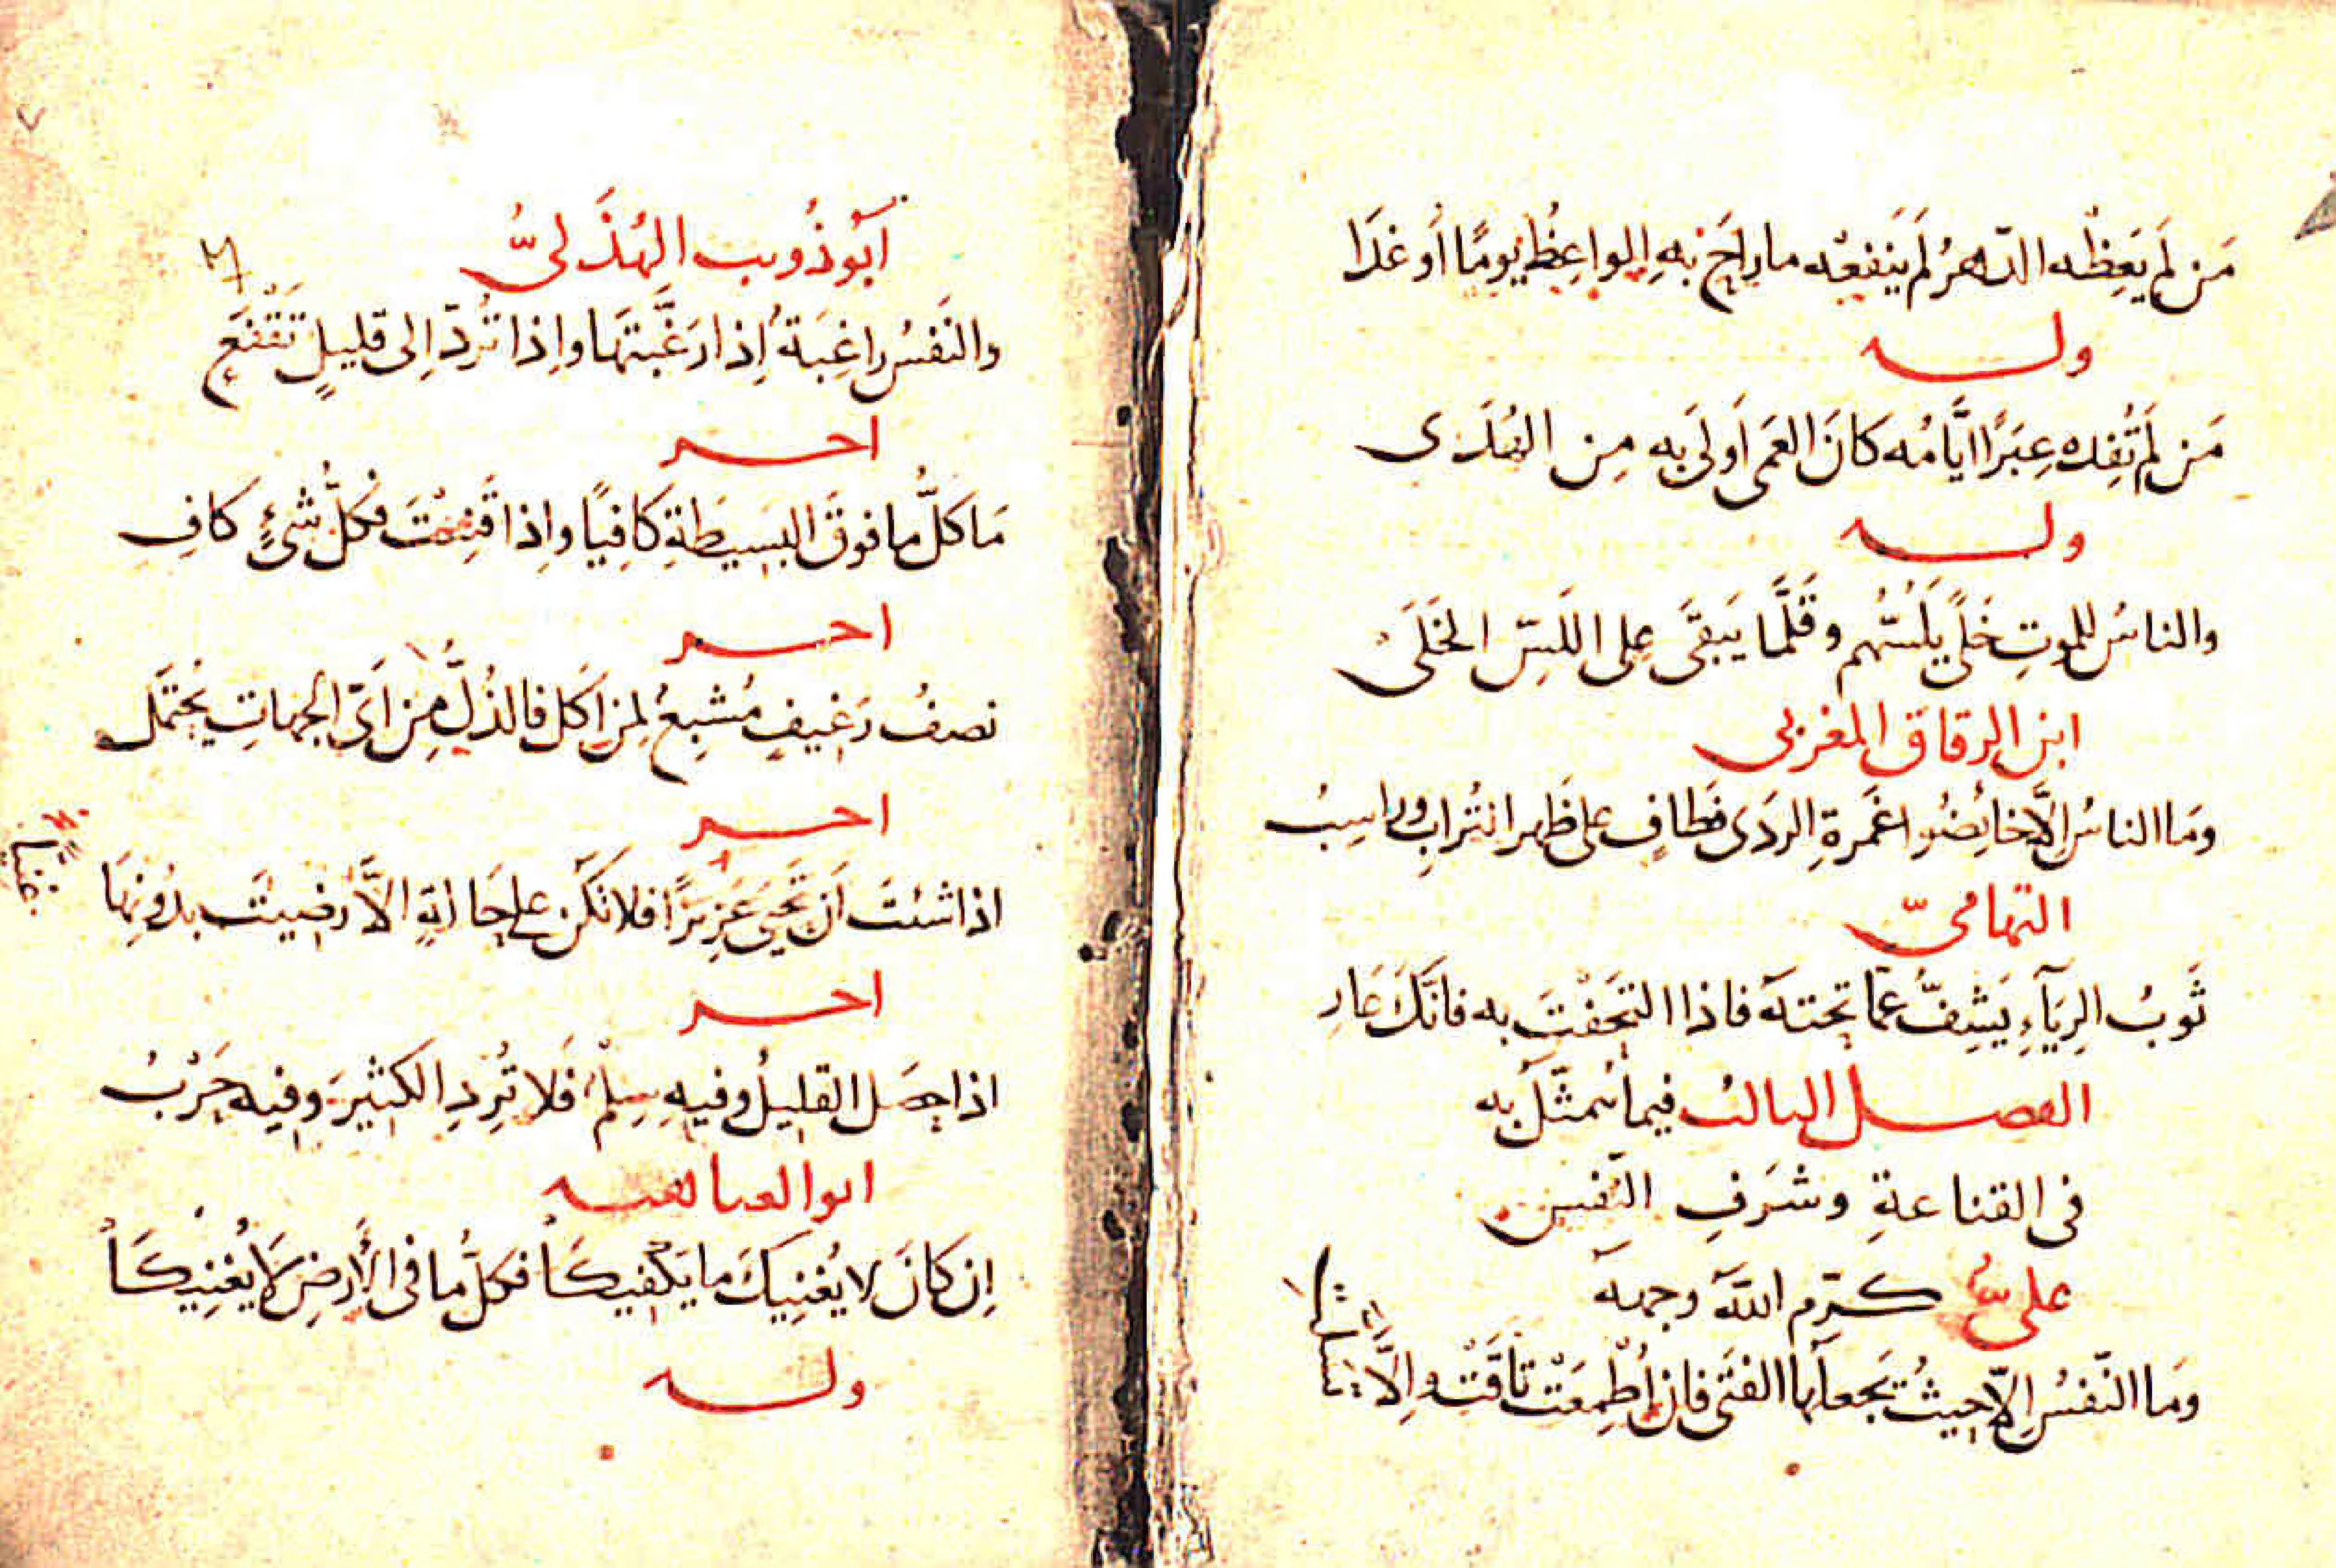 مَن لَم يَعِظْه الدّهرُ لَم يَنفَعْه ما رَاحَ بهِ الواعِظُ يومًا أو غَدَا
وله
مَن لَم تُفِده عِبَرًا ايَّامُه كانَ العَمَى أَولَى بِه مِن الهُدَى
وله
والناسُ للموتِ خَلًى يَلُسُّهُم وقَلَّمَا يَبقَى على اللَّسِّ الخَلَى
ابن الزقاق المغربى
ومَا الناسُ إلَّا خائِضُوا غَمرةِ الردَى فطَافٍ على ظَهر التُرابِ وراسِبُ
التهامىّ
ثَوبُ الرِيَآءِ يَشِفُّ عمّا تحتهَ فاذا التحَفْتَ به فانَّكَ عَارِ
الفصل الثالث فيما يُتمثّلُ به
فى القناعةِ وشَرَفِ النّفس
علىّ كرّم اللهَ وجهه
ومَا النّفسُ إلّا حيثُ يَجعلُها الفتَى فان أُطْمِعَتْ تَاقَتْ وإِلَّا
أبُو ذُويب الهُذَلىُّ
والنَفسُ راغِبَةُ إذا رَغَّبتَهَا وإذا تُرَدّ إلى قليلٍ تَقْنَع
اخر
مَا كلُّ ما فوقَ البَسِيطَةِ كافِيًا وإذا قَنِعْتَ فكلُّ شئٍ كافِ
اخر
نصفُ رَغيفٍ مُشبِعُ لمن أَكل فالذُلَّ مِن أىّ الجهاتِ يُحتَمَل
اخر
اذا شئتَ أن تَحيَى عَزِيزًا فلا تكُن على حَالةٍ الَّا رَضيتَ بدُونِهَا
اخر
اذا حصَل القليلُ وفيهِ سِلْمُ فَلا تُرِدِ الكثيرَ وفيه حَرْبُ
ابو العتاهيه
إن كانَ لا يُغنِيكَ ما يَكْفيكَا فكلُّ ما فى الأرضِ لَا يُغنِيكَا
وله